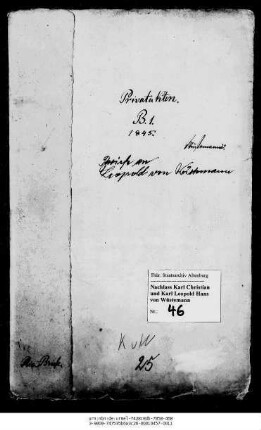 Privatakten.
B. 1.
1845.
Wüstemann
Briefe an
Leopold von Wüstemann
Thür. Staatsarchiv Altenburg
Nachlass Karl Christian
und Karl Leopold Hans
von Wüstemann
Nr. 46
K v W
25